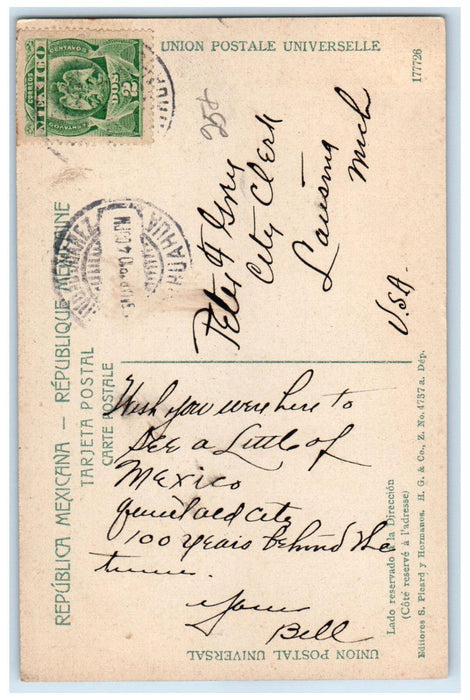 UNION POSTALE UNIVERSELLE
177726
CORREOS
MEXICO
CENTAVOS
CENTAVOS
DOS
2
25¢
Peter F Gray
City Clerk
Lansing
Mich
U.S.A.
CHIHUAHUA
REPÚBLICA MEXICANA — RÉPUBLIQUE MEXICAINE
TARJETA POSTAL
CARTE POSTALE
Wish you were here to
See a Little of
Mexico
old City
100 years behind the
times.
Yours
Bell
Lado reservado á la Dirección
(Côté reservé à l'adresse)
Editores S. Picard y Hermanos. H. G. & Co., Z. No. 4737 a. Dép.
UNION POSTAL UNIVERSAL